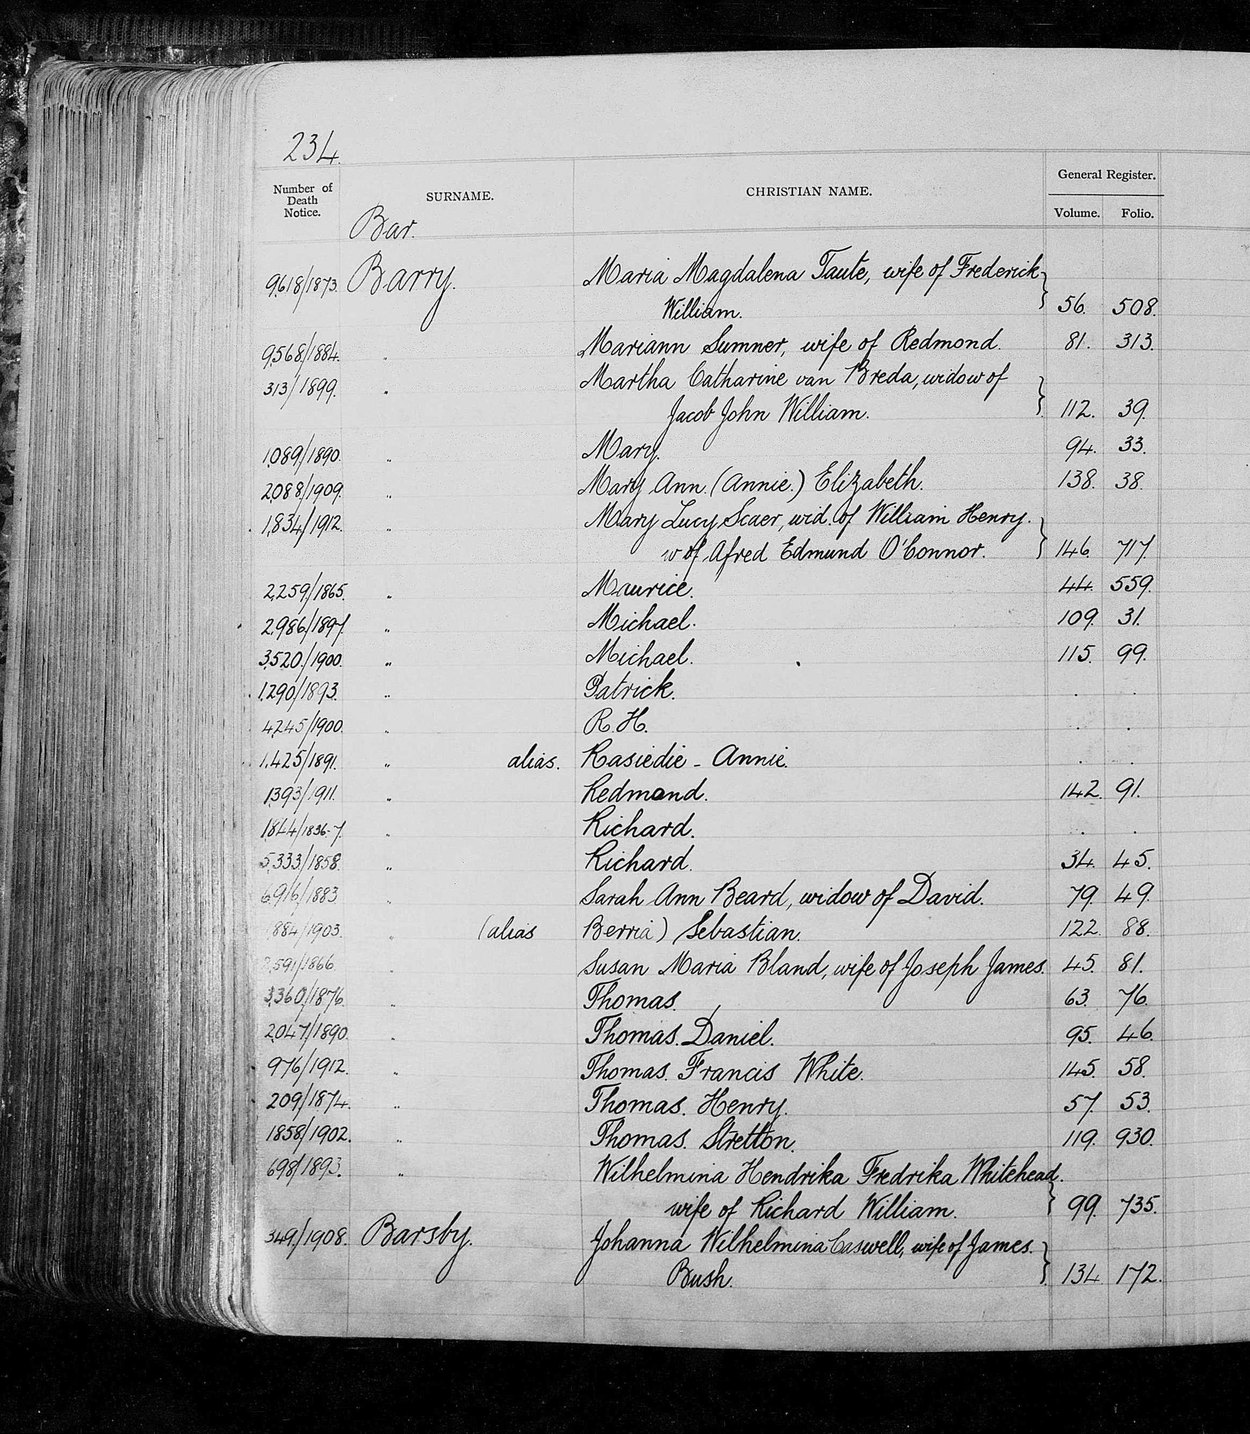 234.
Number of Death Notice. SURNAME. CHRISTIAN NAME. General Register.
Volume. Folio.
Bar.
9,618/1873. Barry. Maria Magdalena Taute, wife of Frederick
William. 56. 508.
9,568/1884. " Mariann Sumner, wife of Redmond. 81. 313.
313/1899. " Martha Catharine van Breda, widow of
Jacob John William. 112. 39.
1,089/1890. " Mary. 94. 33.
2,088/1909. " Mary Ann (Annie.) Elizabeth. 138. 38.
1,834/1912. " Mary Lucy Scaer, wid. of William Henry.
w of Afred Edmund O'Connor. 146. 717.
2,259/1865. " Maurice. 44. 559.
2,986/1897. " Michael. 109. 31.
3,520/1900. " Michael. 115. 99.
1,290/1893. " Patrick. . .
4,245/1900. " R. H. . .
1,425/1891. " alias. Rasiedie - Annie. . .
1,393/1911. " Redmond. 142. 91.
1844/1836-7. " Richard. . .
5,333/1858. " Richard. 34. 45.
6,916/1883 " Sarah Ann Beard, widow of David. 79. 49.
884/1903. " (alias Berria) Sebastian. 122. 88.
591/1866. " Susan Maria Bland, wife of Joseph James. 45. 81.
3,360/1876. " Thomas. 63. 76.
2,047/1890. " Thomas. Daniel. 95. 46.
976/1912. " Thomas. Francis White. 145. 58.
209/1874. " Thomas. Henry. 57. 53.
1858/1902. " Thomas. Stretton. 119. 930.
698/1893. " Wilhelmina Hendrika Fredrika Whitehead.
wife of Richard William. 99. 735.
349/1908. Barsby. Johanna Wilhelmina Caswell, wife of James.
Bush. 134. 172.